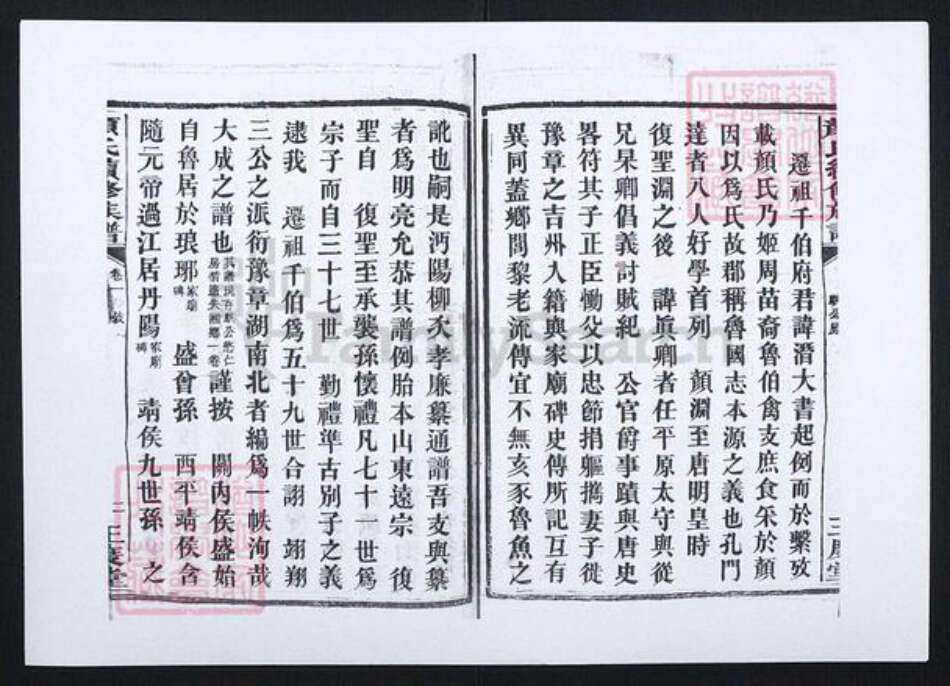 遷祖千伯府君諱潛大書起例而於繫攷
載顏氏乃姬周苗裔魯伯禽支庶食采於顏
因以爲氏故郡稱魯國志本源之義也孔門
達者八人好學首列 顏淵至唐明皇時
復聖淵之後 諱眞卿者任平原太守與從
兄杲卿倡義討賊紀 公官爵事蹟與唐史
畧符其子正臣慟父以忠節捐軀攜妻子徙
豫章之吉州入籍與家廟碑史傳所記互有
異同蓋鄉閭黎老流傳宜不無亥豕魯魚之
訛也嗣是沔陽柳夭孝廉纂通譜吾支與纂
者爲明亮允恭其譜例胎本山東遠宗 復
聖自 復聖至承襲孫懷禮凡七十一世爲
宗子而自三十七世 勤禮準古別子之義
逮我 遷祖千伯爲五十九世合詡 翊翔
三公之派衍豫章湖南北者編爲一帙洵哉
大成之譜也 謹按 關內侯盛始
自魯居於琅琊家廟碑 盛曾孫 西平靖侯含
隨元帝過江居丹陽家廟碑 靖侯九世孫 之
顏氏續修族譜
卷一 敘
三慶堂
FamilySearch